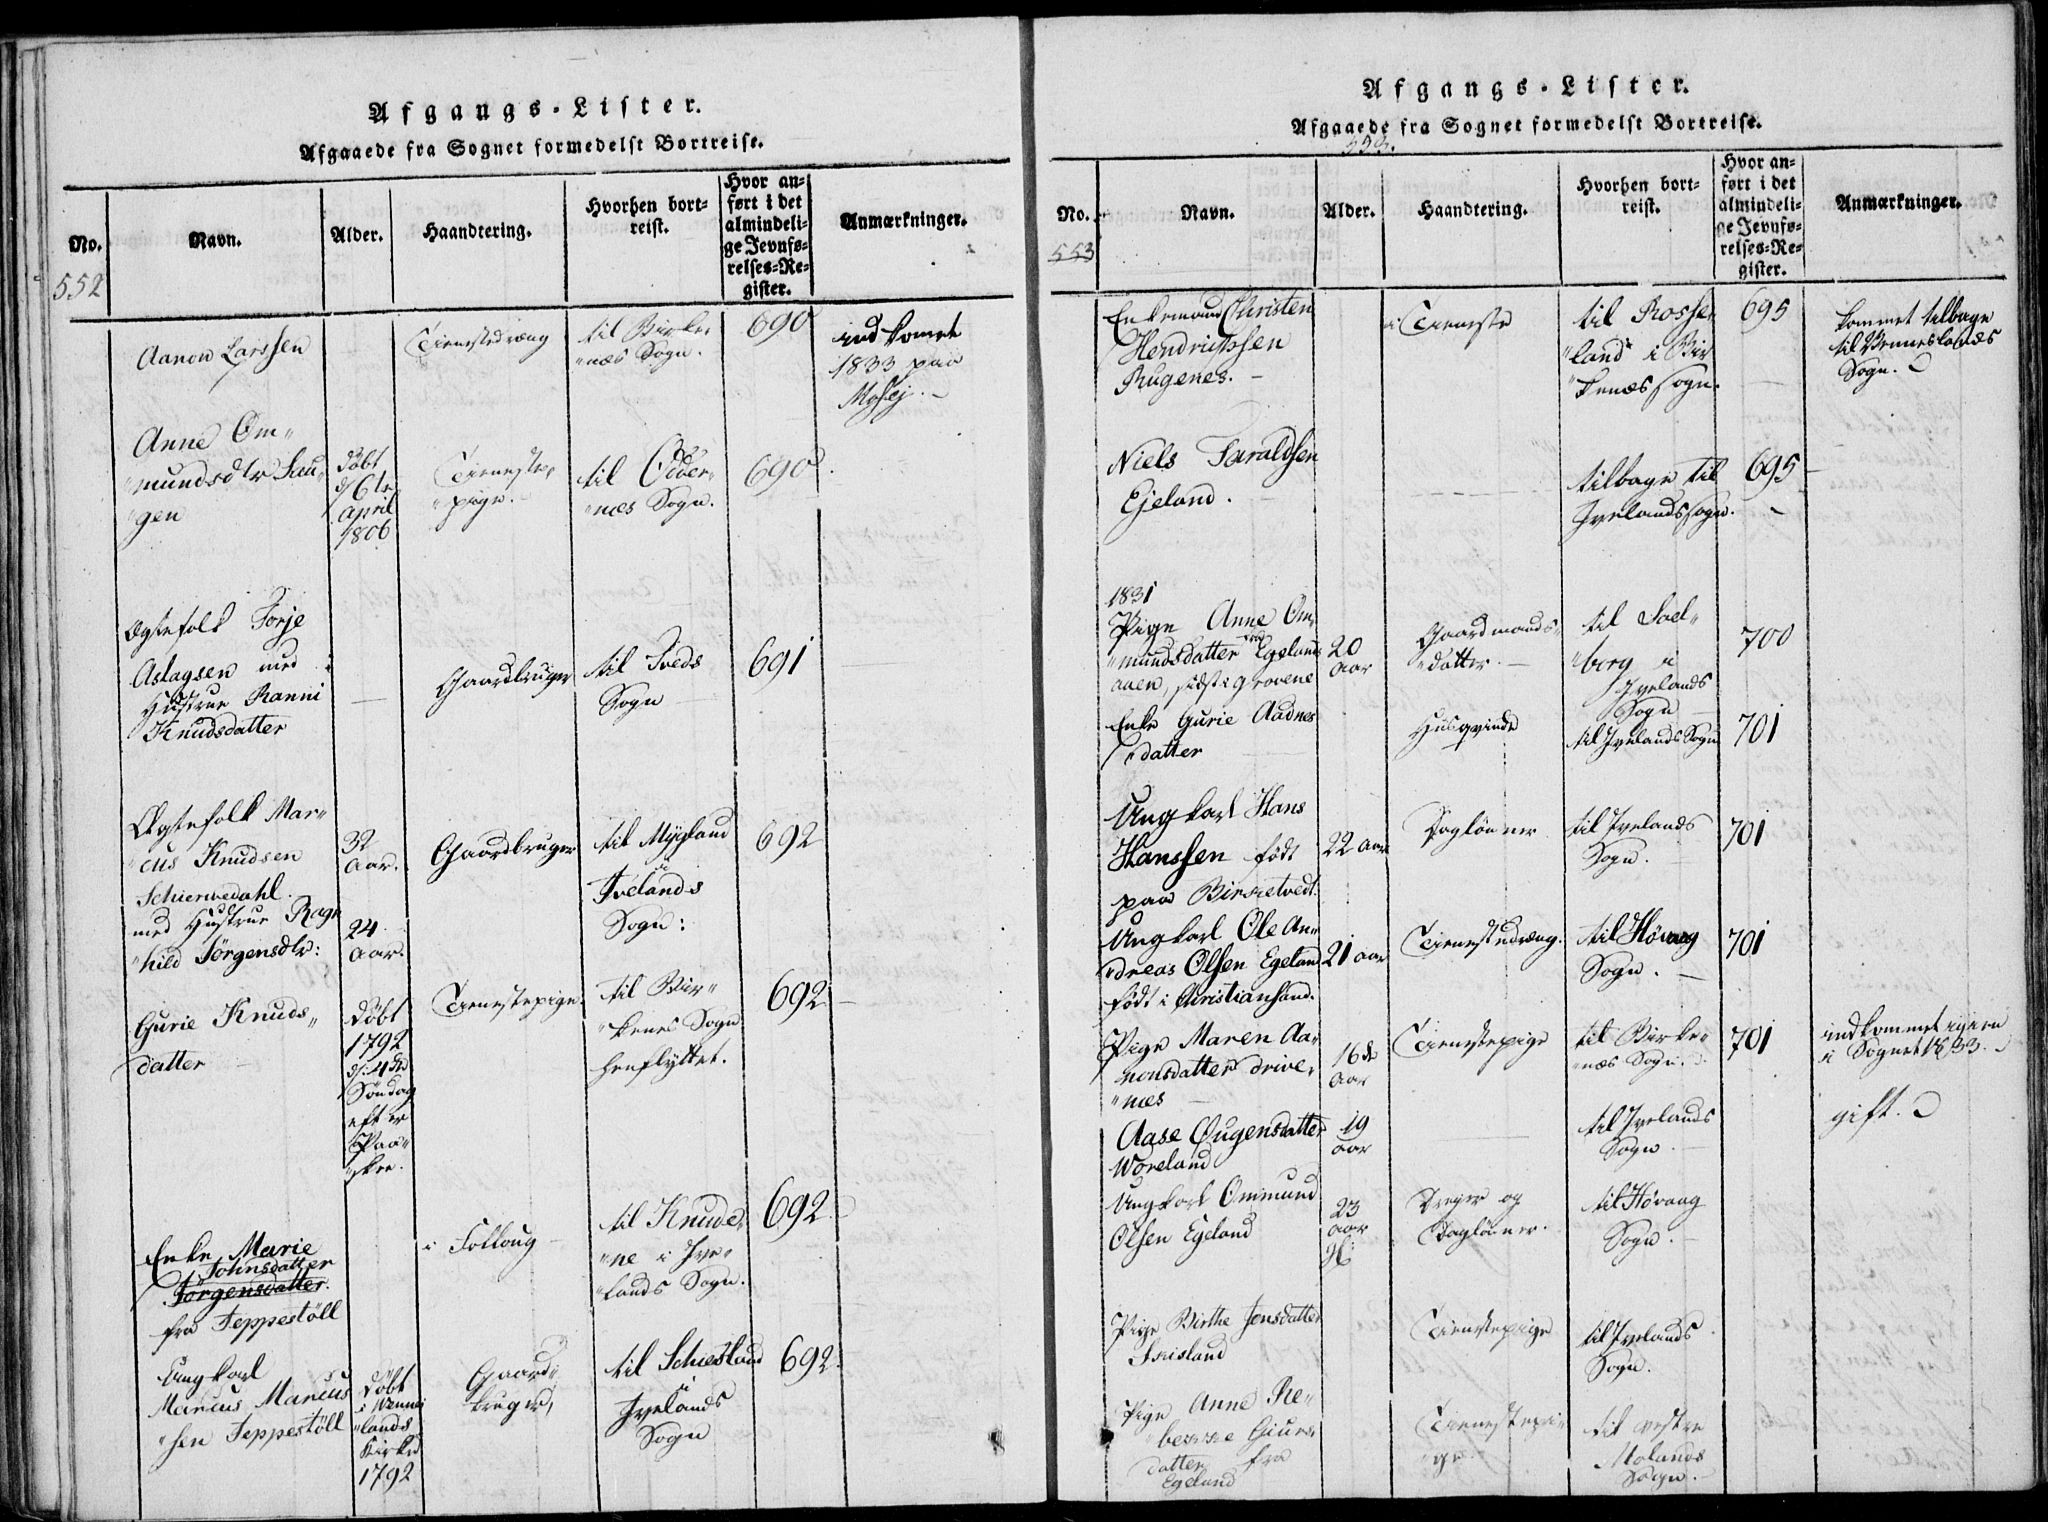 Afgangs-Lister.
Afgaaede fra Sognet formedelst Bortreise.
No.
552
Navn.
Alder.
Haandtering.
Hvorhen bort-
reist.
Hvor an-
ført i det
almindeli-
ge Jevnfø-
relses-Re-
gister.
Anmærkninger.
Aanon Larssen
Tienestedræng
til Birke-
"næs Sogn.
690
indkomet
1833 paa
Mosej.
Anne Om"
"mundsdtr Hau"
"gen
Døbt
d/6te
April
1806
Tieneste"
"pige.
til Odder"
"næs Sogn.
690
Ægtefolk Torje
Aslagsen med
Hustrue Ranni
Knudsdatter
Gaardbruger
til Tveds
Sogn
691
Ægtefolk Mar"
"cus Knudsen
Schierwedahl.
med Hustrue Ragn
"hild Jörgensdtr:
32
Aar.
24
Aar.
Gaardbruger
til Mygland
i
Ivelands
Sogn:
692
Gurie Knuds"
datter
Døbt
1792
d/. 4de
Søndag
efter
Paa"
"ske.
Tienestepige.
til Bir"
"kenes Sogn
henflyttet.
692
Enke Marie
Johnsdatter
Jörgensdatter.
fra Jeppestöll
i Folloug
til Knude"
"ne i Ive"
"lands Sogn.
692
Ungkarl
Marcus Marcus
"sen Jeppestöll
Døbt
i Wenne
"lands
Kirke
1792
Gaard"
bruger,
til Schiesland
i
Ivelands
Sogn
692.
Afgangs-Lister.
Afgaaede fra Sognet formedelst Bortreise.
553.
No.
553
Navn.
Alder.
Haandtering.
Hvorhen bort-
reist.
Hvor an-
ført i det
almindeli-
ge Jevnfø-
relses-Re-
gister.
Anmærkninger.
Enkemand Christen
Hendrichsen
Rugenes.
i Tieneste
til Rosse"
"land i Bir
kenæs Sogn.
695
kommet tilbage
til Vennesla
Sogn.
Niels Taraldsen
Ejeland.
tilbage til
Ivelands Sogn.
695
1831
Pige Anne Om"
"mundsdatter fra Egelands
aaen, sidst i Grovene
20
Aar
Gaardmands"
"datter.
til Sael"
"berg i
Ivelands
Sogn
700
Enke Gurie Aadnes
datter
Huusqvinde
til Ivelands Sogn
701
Ungkarl Hans
Hanssen født
paa Birketvedt.
22 Aar
Daglønner
til Ivelands
Sogn.
701
Ungkarl Ole An"
"dreas Olsen Egeland
født i Christiansand.
21 aar
Tienestedræng.
til Høvaag
Sogn.
701
Pige Maren Aa"
nonsdatter Drive"
"næs
16de
Aar
Tienestepige
til Birke"
"næs Sogn.
701
indkommet igien
i Sognet 1833.
Aase Øugensdatter
Woreland
19
aar
til Ivelands
Sogn.
gift.
Ungkarl Ommund
Olsen Egeland
23
Aar
Dreyer og
Dagløner.
til Høvaag
Sogn.
Pige Birthe Jensdatter
Frisland
Tienestepige
til Ivelands
Sogn.
Pige Anne Re"
"becka Giurs
datter fra
Egeland
Tienestepi"
"ge
til vestre
Molands
Sogn.